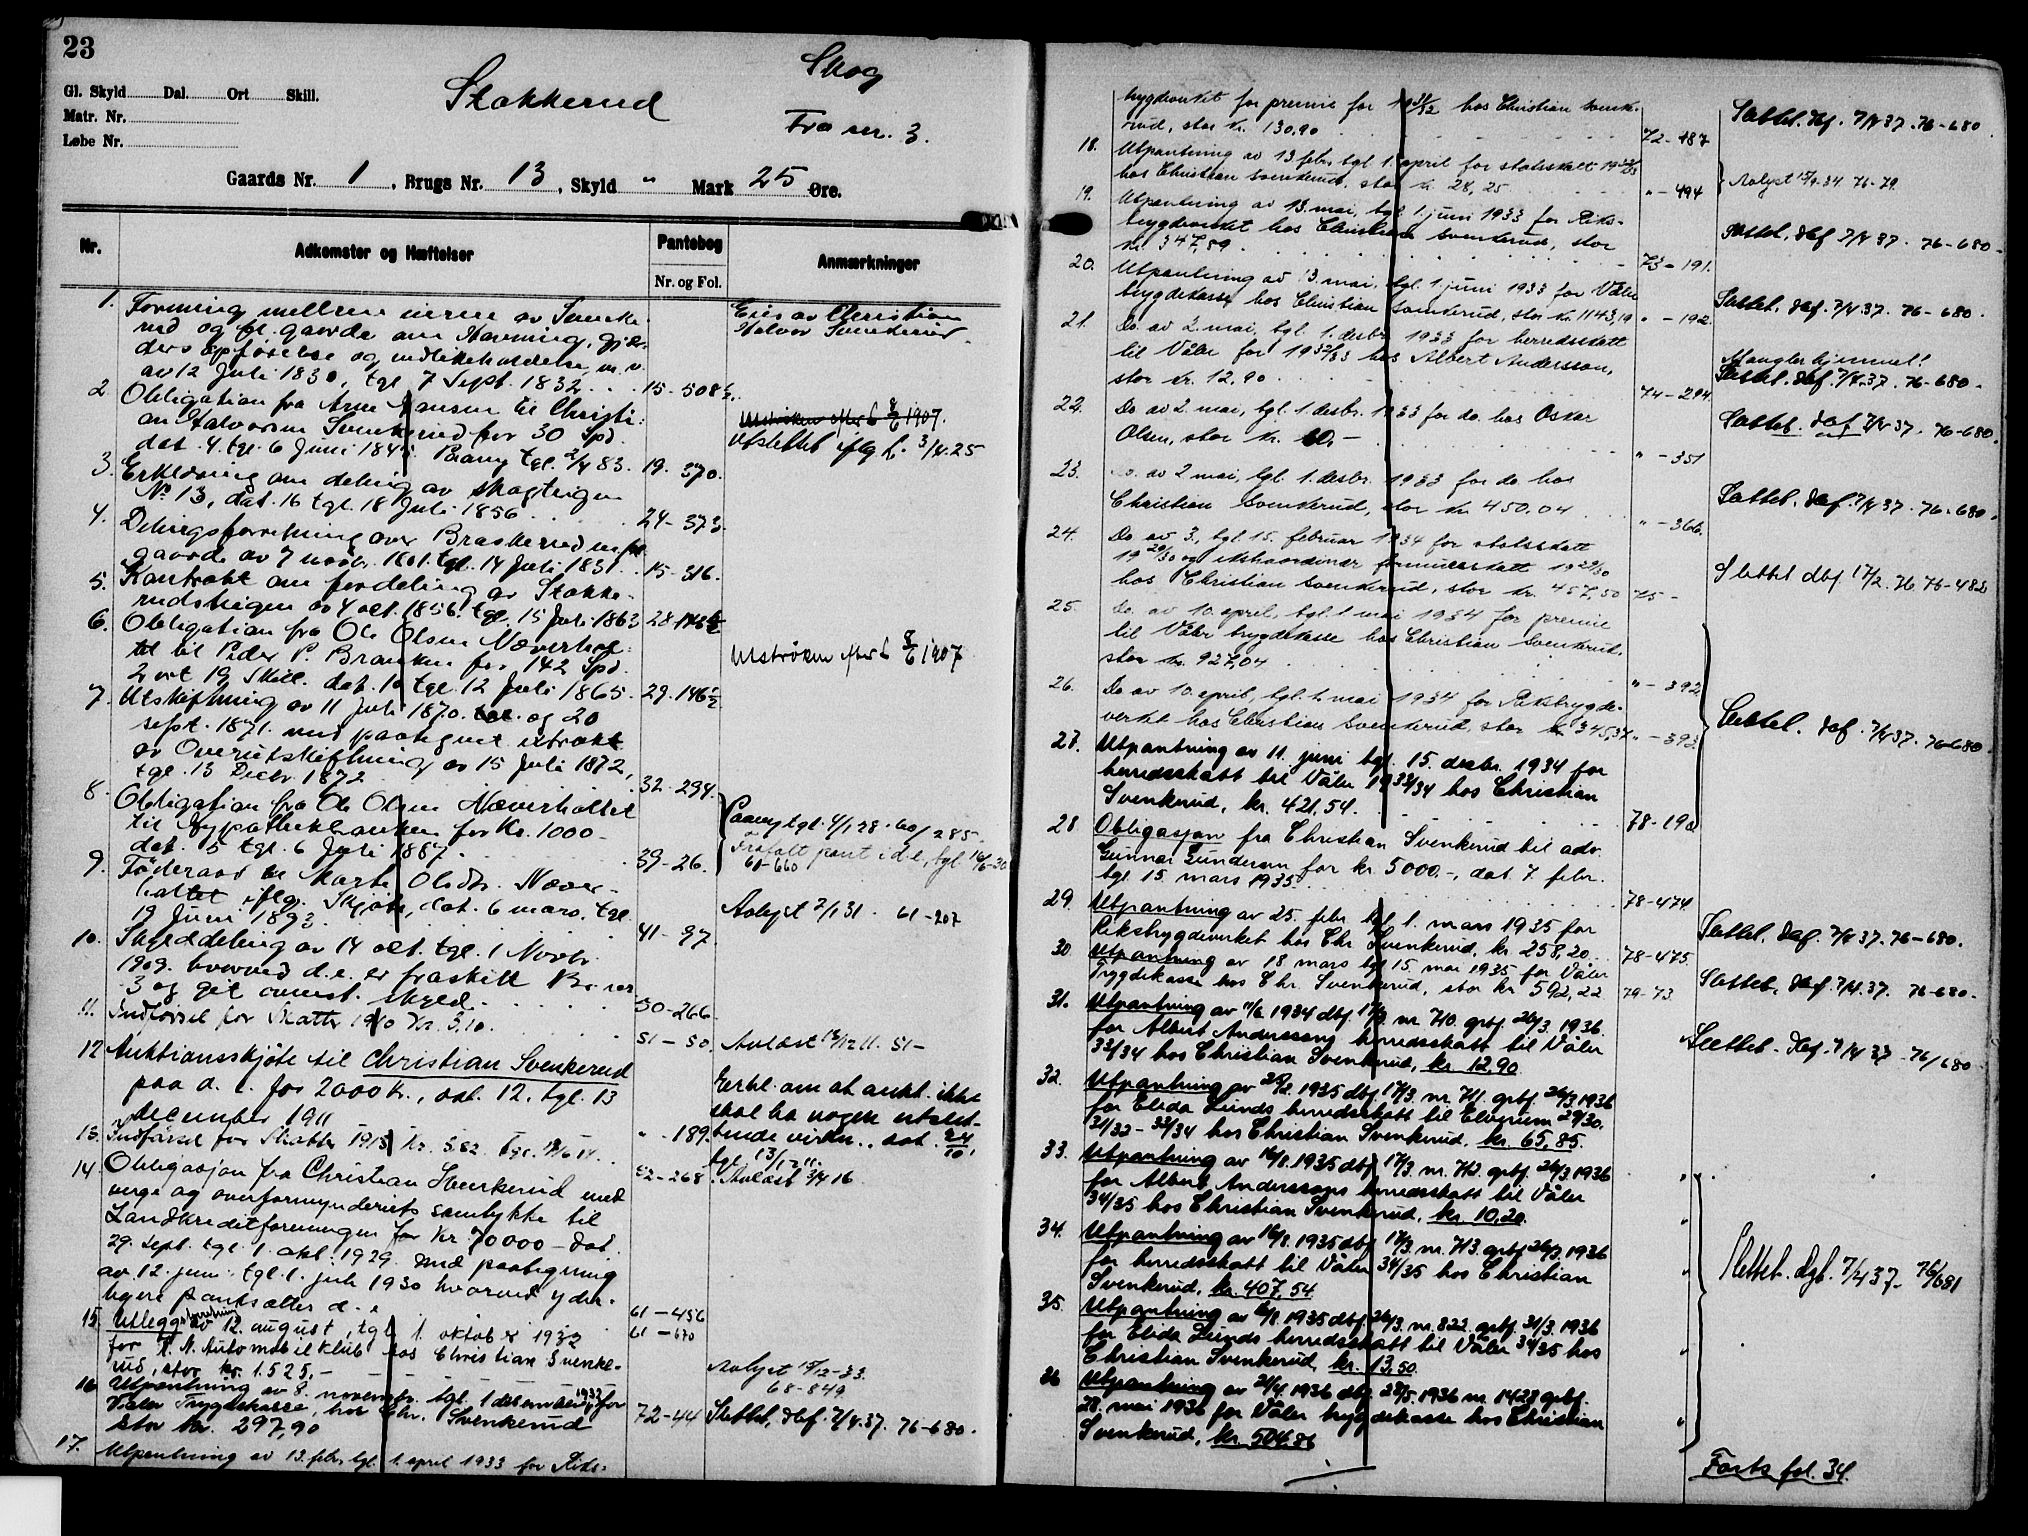 23
Gl. Skyld Dal. Ort Skill.
Matr. Nr.
Løbe Nr.
Stakkerud
Skog
Fra nr. 3.
Gaards Nr. 1, Brugs Nr. 13, Skyld " Mark 25 Øre.
Nr. Adkomster og Hæftelser Pantebog Anmærkninger
Nr. og Fol.
1. Forening mellem eierne av Svenke-
rud og gaarde om Havning, gjær-
ders opførelse og vedlikeholdelse, m.v.
av 12 Juli 1830, tgl. 7 Sept. 1832 15-508
Eies av Christian
Halvor Svenkerud.
2 Obligation fra Arne Hansen til Christi-
an Halvorsen Svenkerud for 30 Spd.
dat. 4. tgl. 6 Juni 184 Paany tgl. 2/4 83. 19. 370.
Utstrøken efter L 8/6 1907.
Utslettet iflg L. 3/4.25
3. Erklæring om deling av skogteigen
No 13, dat. 16 tgl. 18 Juli 1856 24-373
4. Delingsforretning over Braskerud
gaarde av 7 novbr. 1801. tgl. 14 Juli 1831. 15-316.
5. Kontrakt om fordeling av Stakke-
rudsteigen av 4 oct. 1856. tgl. 15 Juli 1863 28
6. Obligation fra Ole Olsen Næverhol-
tet til Peder P. Brauken for 142 Spd.
2 ort 19 Skill. dat. 10 tgl. 12 Juli 1865. 29-146
Utstrøken efter L 8/6 1907
7. Utskiftning av 11 Juli 1870. og 20
sept. 1871. med paategnet extrakt
av Overutskiftning av 15 Juli 1872,
tgl. 13 Decbr. 1872 32-294.
8. Obligation fra Ole Olsen Næverholtet
til Hypothekbanken for Kr. 1000-
dat. 5 tgl. 6 Juli 1887. 39-26.
Paany tgl. 4/1 28. 60/285
Frafalt pant i d.e., tgl. 16/6-30
60-660
9. Føderaad til Marte Olsdtr. Næver-
holtet iflg. Skjøte, dat. 6 mars, tgl.
19 Juni 1893 41-97.
Avlyst 2/1 31. 61-207
10. Skylddeling av 14 oct. tgl. 1 Novbr.
1909. hvorved d.e. er fraskilt Br. nr
3 og git ovenst. skyld. 50-266
11. Indførsel for Skatter 1910 Kr. 3.10. 51-50.
Avlæst 12/12 11. 51-
12 Auktionsskjøte til Christian Svenkerud
paa d. e. for 2000 kr., dat. 12. tgl. 13
december 1911 " - 189.
Erkl. om at aukt. ikke
skal ha nogen utslet-
tende virkn., dat. 24/10,
tgl. 13/12 11.
13. Indførsel for Skatter 1913 Kr. 5.82 tgl. 19/6 14. 52-268
Avlæst 3/4 16
14. Obligasjon fra Christian Svenkerud med
verge og overformynderiets samtykke til
Landkreditforeningen for Kr 70000 - dat.
29. sept. tgl. 1. okt. 1929. Med paategning
av 12. juni tgl. 1. juli 1930 hvorved yder-
ligere pantsætter d. e 61-456
61-670
15. Utleggsforretning av 12. august, tgl. 1. oktober 1932
for K. N. Automobilklub hos Christian Svenke-
rud, stor kr. 1.525,-
Avlyst 15/12-33
68-849
16. Utpantning av 8. november tgl. 1 desember 1932 for
Våler Trygdekasse, hos Chr. Svenkerud
stor kr. 297,90 72-44
Slettet, dbf. 7/4.37. 76-680.
17. Utpantning av 13. febr. tgl. 1. april 1933 for Riks-
trygdverket for premie for 1931/32 hos Christian Svenke-
rud, stor kr. 130.90 72-487
Slettet. dbf. 7/4 37. 76-680
18. Utpantning av 13. febr. tgl. 1. april for statsskatt 1932/33
hos Christian Svenkerud, stor kr 28,25 " - 494
Avlyst 15/9.34 76-79.
19. Utpantning av 13. mai, tgl. 1. juni 1933 for Riks-
trygdeverket hos Christian Svenkerud, stor
kr. 347,89 73-191.
Slettet, dbf 7/4 37. 76-680-
20. Utpantning av 13. mai, tgl. 1. juni 1933 for Våler
trygdekasse hos Christian Svenkerud, stor kr. 1143,19 " - 192.
Slettet. dbf. 7/4.37. 76-680.
21. Do. av 2. mai, tgl. 1. desbr. 1933 for herredsskatt
til Våler for 1932/33 hos Albert Andersson,
stor kr. 12,90 74-294.
Mangler hjemmel!
Slettet. dbf. 7/4.37. 76-680.
22. Do av 2. mai, tgl. 1. desbr. 1933 for do. hos Oskar
Olsen, stor kr. 60.- " - 351
Slettet. dbf 7/4 37. 76-680.
23. Do. av 2 mai, tgl. 1. desbr. 1933 for do hos
Christian Svenkerud, stor kr. 450.04 " - 366.
Slettet. dbf. 7/4 37. 76-680.
24. Do av 3, tgl. 15. februar 1934 for statsskatt
1929/30 og ekstraordinær formuesskatt 1929/30
hos Christian Svenkerud, stor kr. 457,50 75 -
Slettet dbf 17/2. 76 76-482
25. Do. av 10. april, tgl. 1 mai 1934 for premie
til Våler trygdekasse hos Christian Svenkerud,
stor kr. 927,04 " - 392
26. Do av 10. april, tgl. 1. mai 1934 for Rikstrygde-
verket hos Christian Svenkerud, stor kr 345,34 " - 393
27. Utpantning av 11. juni tgl. 15. desbr. 1934 for
herredsskatt til Våler 1933/34 hos Christian
Svenkerud, kr. 421,54. 78-19
Slettet. dbf. 7/4 37. 76-680
28 Obligasjon fra Christian Svenkerud til adv.
Gunnar Gundersen for kr. 5000.-, dat 7. febr.
tgl. 15. mars 1935 78-474
29. Utpantning av 25. febr. tgl. 1. mars 1935 for
Rikstrygdeverket hos Chr. Svenkerud, kr. 258,20. 78-475.
Slettet. dbf. 7/4 37. 76-680.
30 Utpantning av 18 mars tgl 15. mai 1935 for Våler
Trygdekasse hos Chr. Svenkerud, stor kr 592,22 79-73.
Slettet. dbf. 7/4.37. 76-680-
31. Utpantning av 11/6 1934 dbf. 17/3 nr. 710. grbf. 26/3. 1936
for Albert Anderssons herredsskatt til Våler
33/34 hos Christian Svenkerud, kr. 12.90
Slettet. dbf. 7/4 37 - 76/680
32. Utpantning av 25/2. 1935 dbf. 17/3. nr. 711. grbf. 26/3 1936
for Elida Lunds herredsskatt til Elverum 29/30.
31/32 - 33/34 hos Christian Svenkerud. kr. 65,85.
33. Utpantning av 16/8. 1935 dbf. 17/3. nr. 712. grbf. 26/3 1936
for Albert Anderssons herredsskatt til Våler
34/35 hos Christian Svenkerud, kr. 10,20.
34. Utpantning av 16/8. 1935 dbf. 17/3. nr. 713. grbf. 26/3. 1936
for herredsskatt til Våler 34/35 hos Christian
Svenkerud, kr. 407,54
Slettet. dgb. 7/4 37- 76/681
35. Utpantning av 16/8. 1935 dbf. 26/3. nr. 822. grbf. 31/3. 1936
for Elida Lunds herredsskatt til Våler 34/35 hos
Christian Svenkerud, kr. 13,50.
36 Utpantning av 21/4. 1936 dbf. 28/5. 1936 nr. 1428 grbf.
28. mai 1936 for Våler trygdekasse hos Christian
Svenkerud, kr. 504.86
Forts. fol. 34.